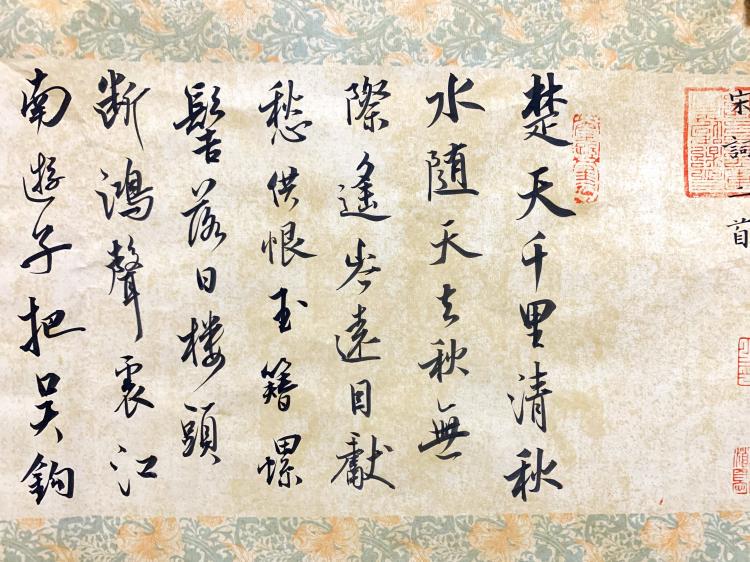 宋詞二首
楚天千里清秋
水随天去秋無
際遥岑遠目獻
愁供恨玉簪螺
髻落日樓頭
断鴻聲裏江
南遊子把吴鈎